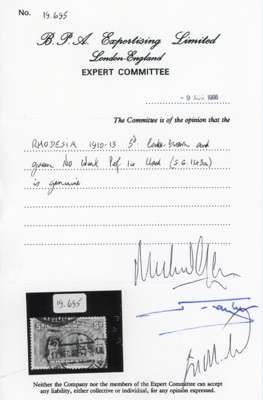 No. 19.695
B.P.A. Expertising Limited
London·England
EXPERT COMMITTEE
1998
The Committee is of the opinion that the
RHODESIA 1910-13 5d and
green No Perf 14 Used (S.G. 143a)
is genuine
19.695
Neither the Company nor the members of the Expert Committee can accept
any liability, either collective or individual, for any opinion expressed.